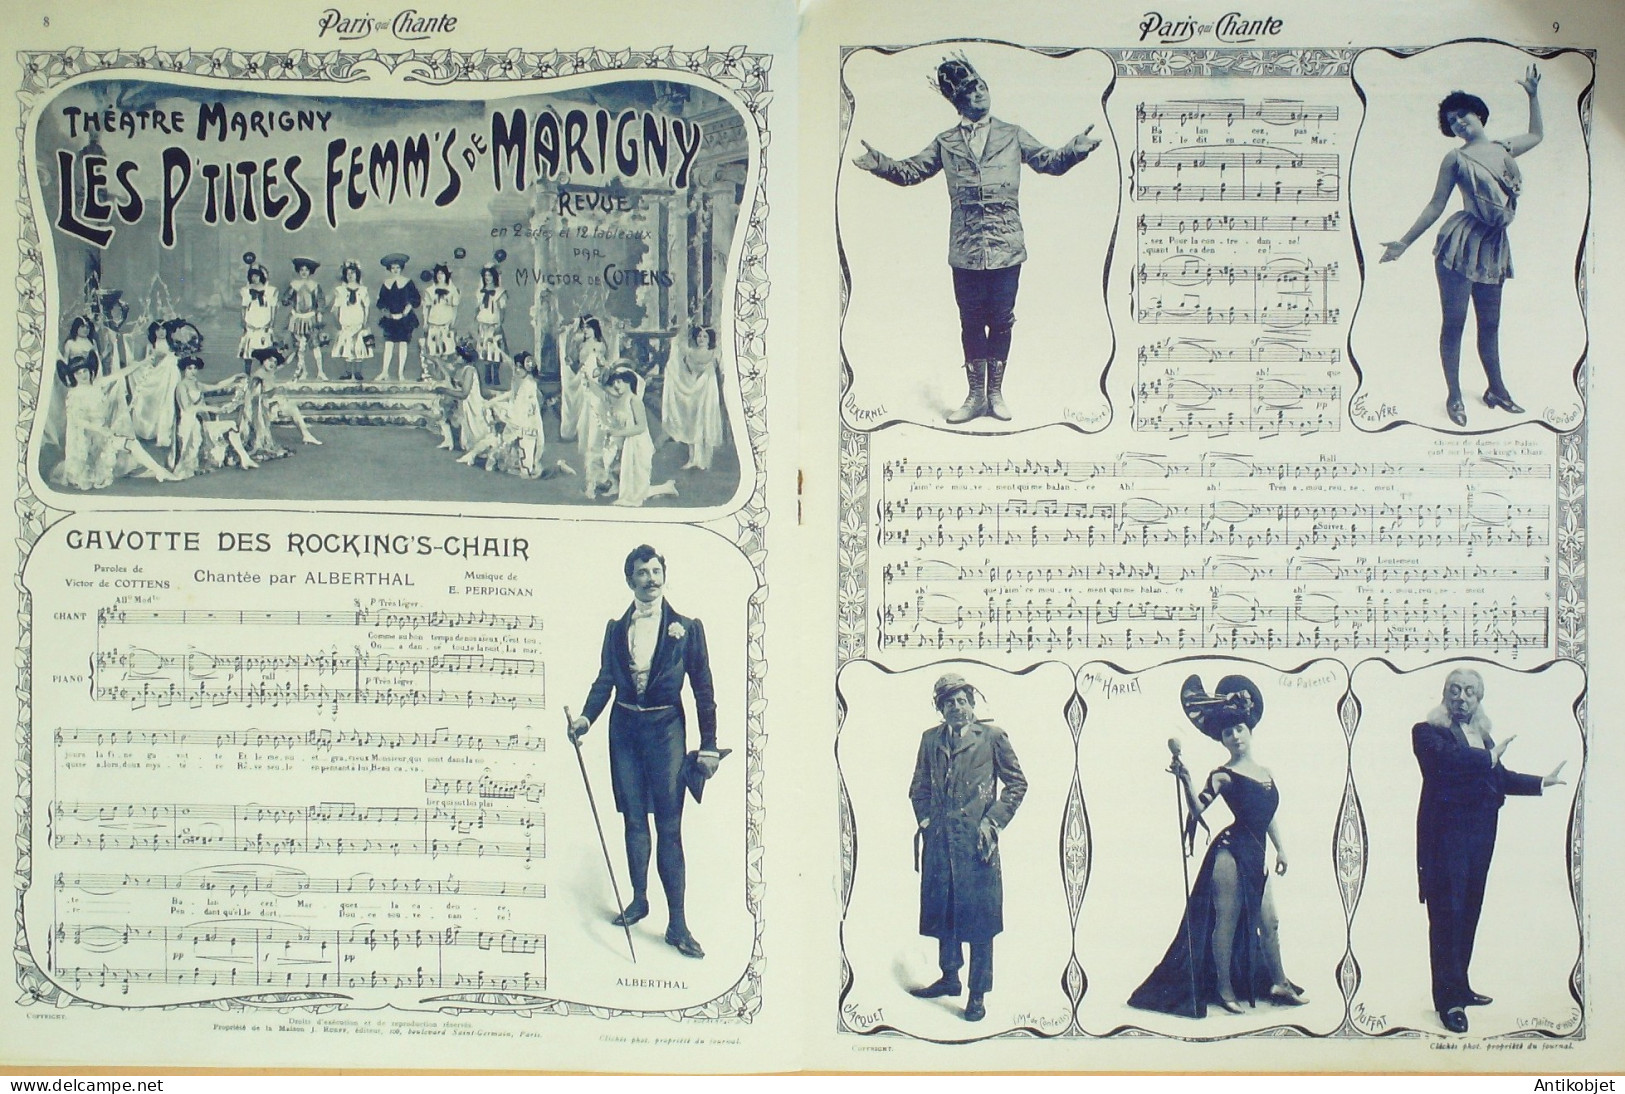 8
Paris qui Chante
THÉATRE MARIGNY
LES P'TITES FEMM'S DE MARIGNY
REVUE
en 2 actes et 12 tableaux
PAR
M. VICTOR DE COTTENS
GAVOTTE DES ROCKING'S-CHAIR
Paroles de
Victor de COTTENS
Chantée par ALBERTHAL
Musique de
E. PERPIGNAN
All° Modto
P Très léger
CHANT
Comme au bon temps de nos aïeux, C'est tou.
On a dan. sé toute la nuit, La mar.
PIANO
f
p
rall
P Très léger
jours la fi. ne ga. vot. te Et le me. nu. et gra. cieux Monsieur, qui sont dans la no.
quise a. lors, doux mys. tè. re Rê. ve seu. le en pensant à lui, Beau ca. va.
lier qui sut lui plai.
te Ba. lan. cez! Mar. quez la ca. den. ce,
re Pen. dant qu'el. le dort, Dou. ce sou. ve. nan. ce!
pp
f
pp
ALBERTHAL
COPYRIGHT.
Droits d'exécution et de reproduction réservés.
Propriété de la Maison J. RUEFF, éditeur, 100, boulevard Saint-Germain, Paris.
Clichés phot. propriété du journal.
Paris qui Chante
9
Ba. lan. cez, pas.
El. le dit en. cor. Mar.
sez Pour la con. tre. dan. se!
quant la ca. den. ce!
Ah! ah! que
pp
DEKERNEL
(Le Compère)
ÈVE DE VÈRE
(Cupidon)
Chœur de dames se balan-
çant sur les Rocking's Chair.
Rall
j'aim' ce mou. ve. ment qui me balan. ce Ah! ah! Très a. mou. reu. se. ment Ah!
Suivez
pp
Lentement
ah! que j'aim' ce mou. ve. ment qui me balan. ce Ah! ah! Très a. mou. reu. se. ment
Suivez
Mlle HARLET
(La Palette)
JACQUET
(Md de Confetti)
MUFFAT
(Le Maître d'hôtel)
COPYRIGHT.
Clichés phot. propriété du journal.
© www.delcampe.net
Antikobjet